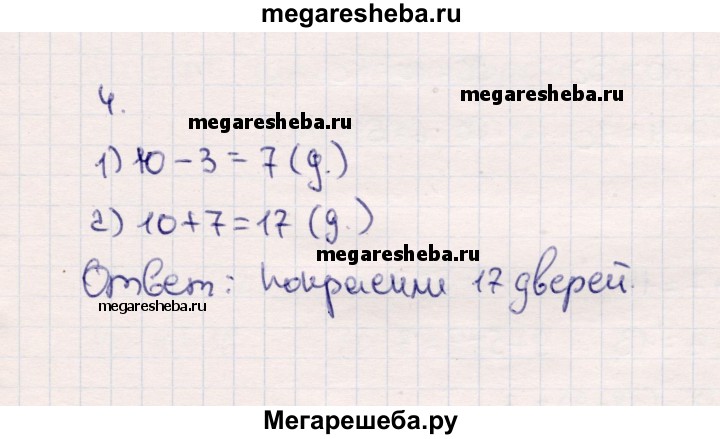 megaresheba.ru
4.
megaresheba.ru
megaresheba.ru
1) 10 - 3 = 7 (д.)
2) 10 + 7 = 17 (д.)
megaresheba.ru
Ответ: покрасили 17 дверей.
megaresheba.ru
Мегарешеба.ру